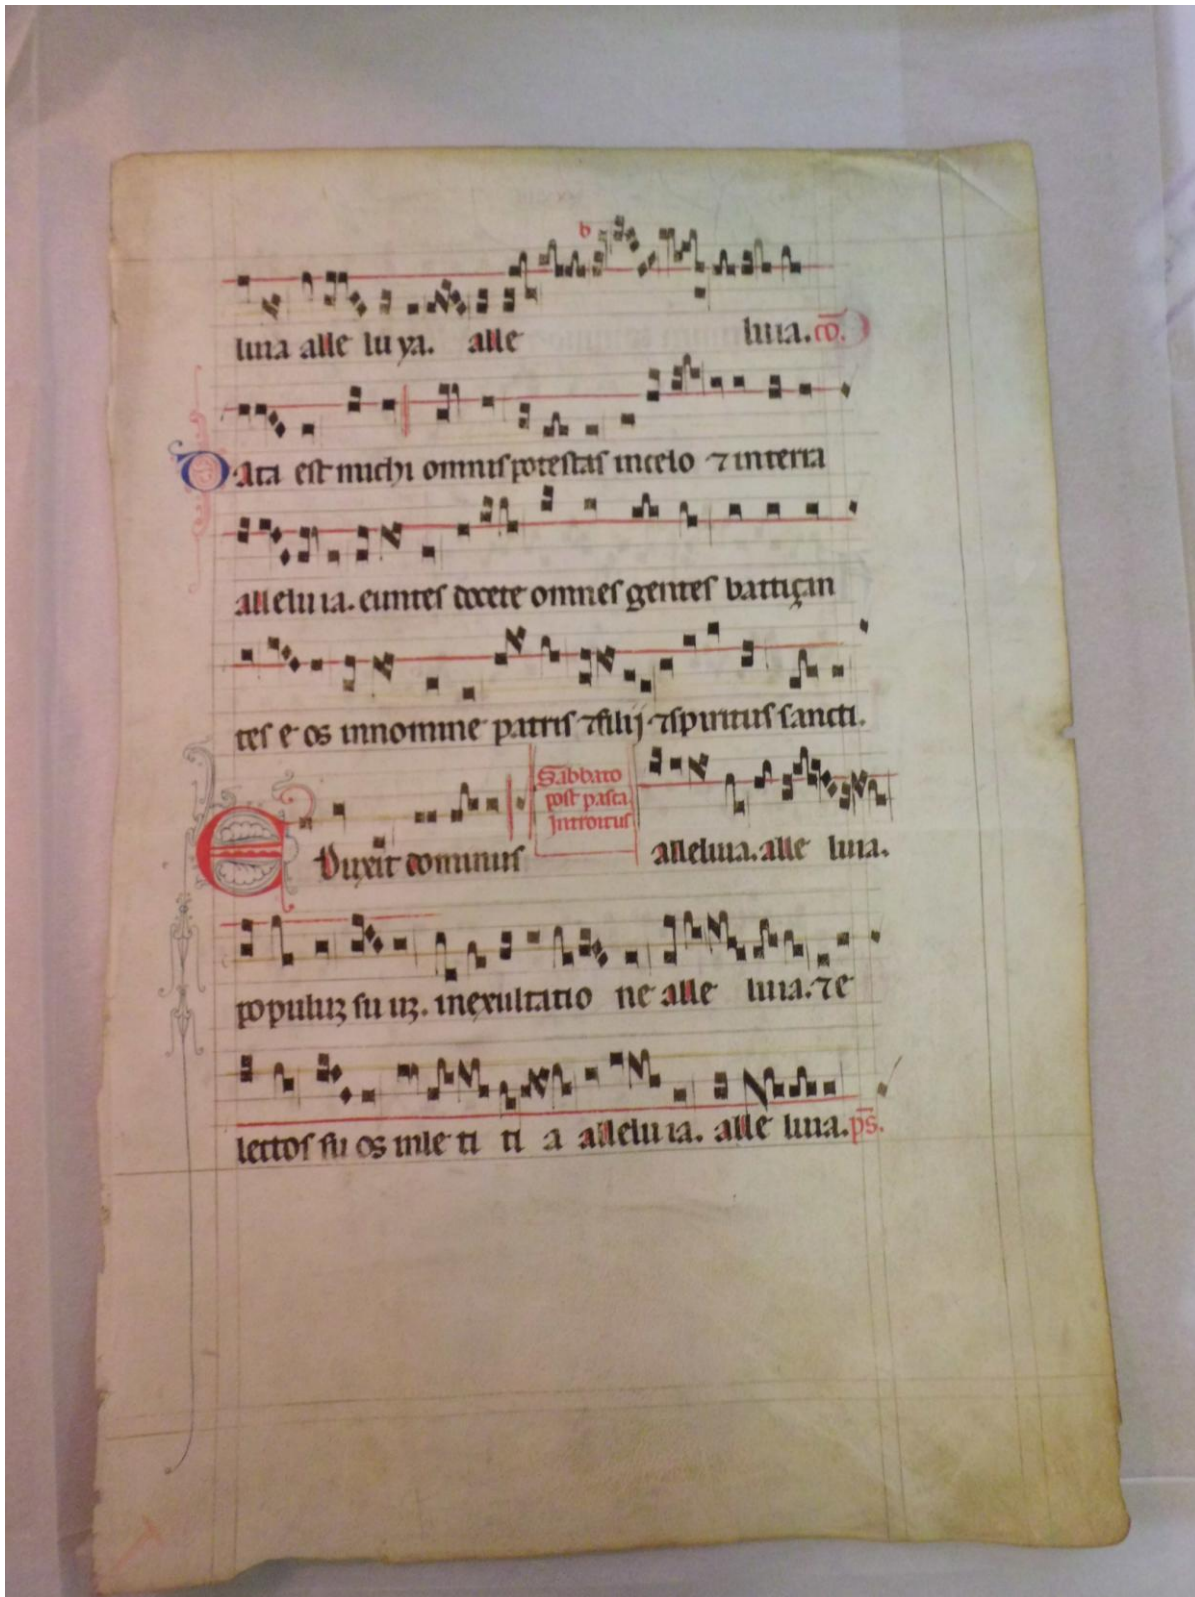 luia alle lu ya. alle luia. cō.
Data est michi omnis potestas in celo ⁊ in terra
alleluia. euntes docete omnes gentes baptiçan
tes e os in nomine patris ⁊ filij ⁊ spiritus sancti.
Sabbato
post pasca
Introitus
Eduxit dominus alleluia. alle luia.
populuꝫ su uꝫ. in exultatio ne alle luia. ⁊ e
lectos su os in le ti ti a alleluia. alle luia. p̄s.